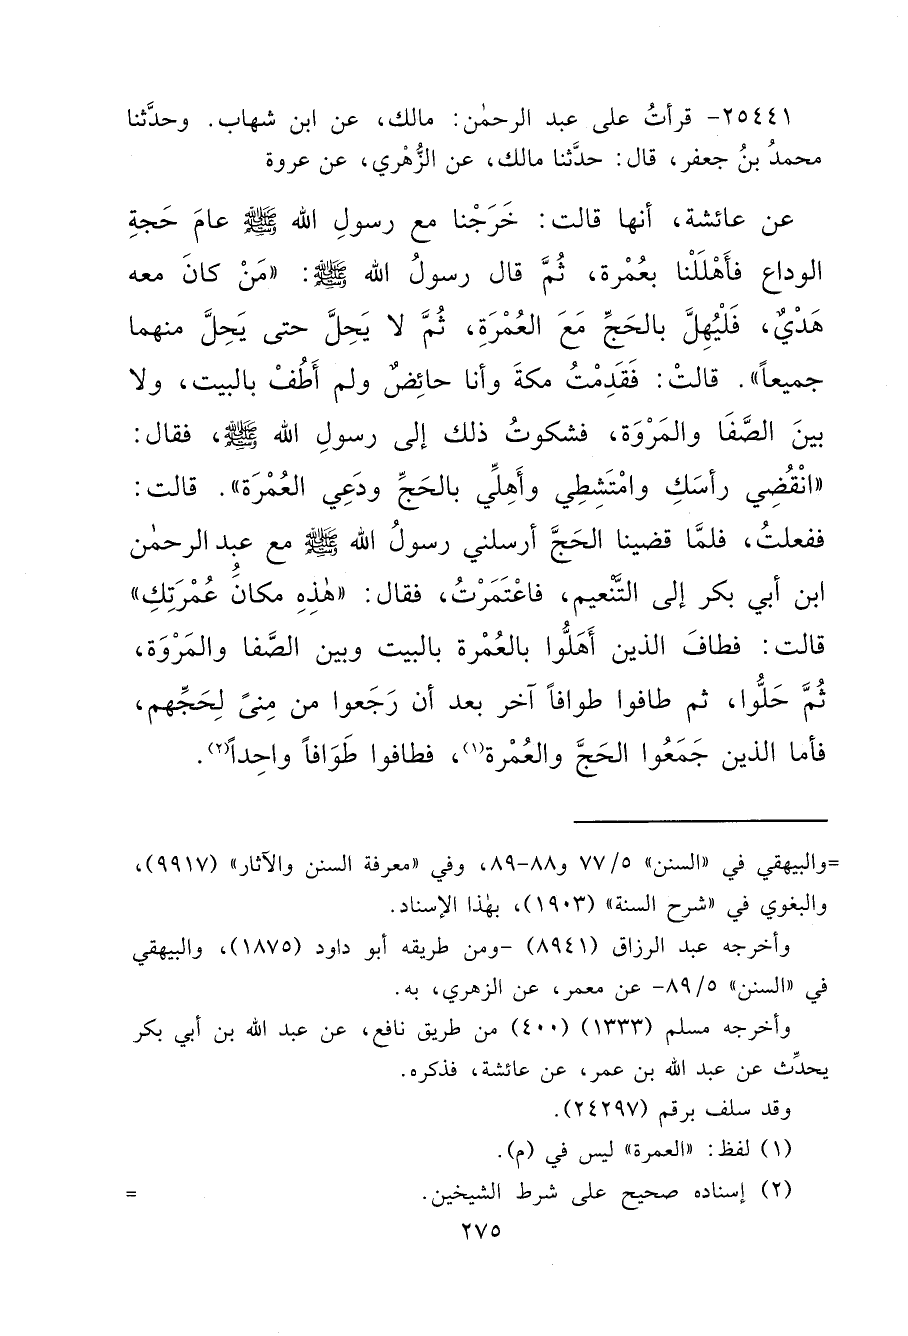 ٢٥٤٤١- قرأتُ على عبد الرحمٰن: مالك، عن ابن شهاب. وحدَّثنا
محمدُ بنُ جعفر، قال: حدَّثنا مالك، عن الزُّهْري، عن عروة
عن عائشة، أنها قالت: خَرَجْنا مع رسولِ الله ﷺ عامَ حَجةِ
الوداع فأَهْلَلْنا بعُمْرة، ثُمَّ قال رسولُ الله ﷺ: «مَنْ كانَ معه
هَدْيٌ، فَلْيُهِلَّ بالحَجِّ مَعَ العُمْرَةِ، ثُمَّ لا يَحِلَّ حتى يَحِلَّ منهما
جميعاً». قالتْ: فَقَدِمْتُ مكةَ وأنا حائِضٌ ولم أَطُفْ بالبيت، ولا
بينَ الصَّفَا والمَرْوَة، فشكوتُ ذلك إلى رسولِ الله ﷺ، فقال:
«انْقُضِي رأسَكِ وامْتَشِطِي وأَهِلِّي بالحَجِّ ودَعِي العُمْرَة». قالت:
ففعلتُ، فلمَّا قضينا الحَجَّ أرسلني رسولُ الله ﷺ مع عبد الرحمٰن
ابن أبي بكر إلى التَّنْعيم، فاعْتَمَرْتُ، فقال: «هٰذِهِ مكانَُ عُمْرَتِكِ»
قالت: فطافَ الذين أَهَلُّوا بالعُمْرة بالبيت وبين الصَّفا والمَرْوَة،
ثُمَّ حَلُّوا، ثم طافوا طوافاً آخر بعد أن رَجَعوا من مِنىً لِحَجِّهم،
فأما الذين جَمَعُوا الحَجَّ والعُمْرة(١)، فطافوا طَوَافاً واحِداً(٢).
=والبيهقي في «السنن» ٧٧/٥ و٨٨-٨٩، وفي «معرفة السنن والآثار» (٩٩١٧)،
والبغوي في «شرح السنة» (١٩٠٣)، بهٰذا الإسناد.
وأخرجه عبد الرزاق (٨٩٤١) -ومن طريقه أبو داود (١٨٧٥)، والبيهقي
في «السنن» ٨٩/٥- عن معمر، عن الزهري، به.
وأخرجه مسلم (١٣٣٣) (٤٠٠) من طريق نافع، عن عبد الله بن أبي بكر
يحدِّث عن عبد الله بن عمر، عن عائشة، فذكره.
وقد سلف برقم (٢٤٢٩٧).
(١) لفظ: «العمرة» ليس في (م).
(٢) إسناده صحيح على شرط الشيخين. =
٢٧٥